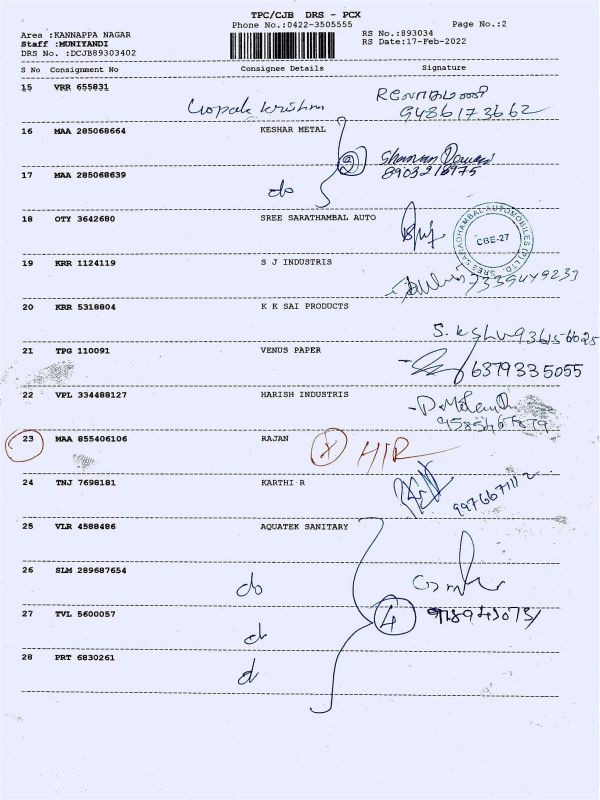 TPC/CJB DRS - PCX
Phone No.:0422-3505555 Page No.:2
Area :KANNAPPA NAGAR RS No.:893034
Staff :MUNIYANDI RS Date:17-Feb-2022
DRS No. :DCJB89303402
S No Consignment No Consignee Details Signature
15 VRR 655831
Gopala krishnan
9486173662
16 MAA 285068664 KESHAR METAL
2
17 MAA 285068639
8903218975
do
18 OTY 3642680 SREE SARATHAMBAL AUTO
SREE SARADHAMBAL AUTOMOBILES (P) LTD.
CBE-27
19 KRR 1124119 S J INDUSTRIS
7339449233
20 KRR 5318804 K K SAI PRODUCTS
21 TPG 110091 VENUS PAPER
6379335055
22 VPL 334488127 HARISH INDUSTRIS
23 MAA 855406106 RAJAN X
24 TNJ 7698181 KARTHI R
25 VLR 4588486 AQUATEK SANITARY
26 SLM 289687654
do
27 TVL 5600057 4
28 PRT 6830261